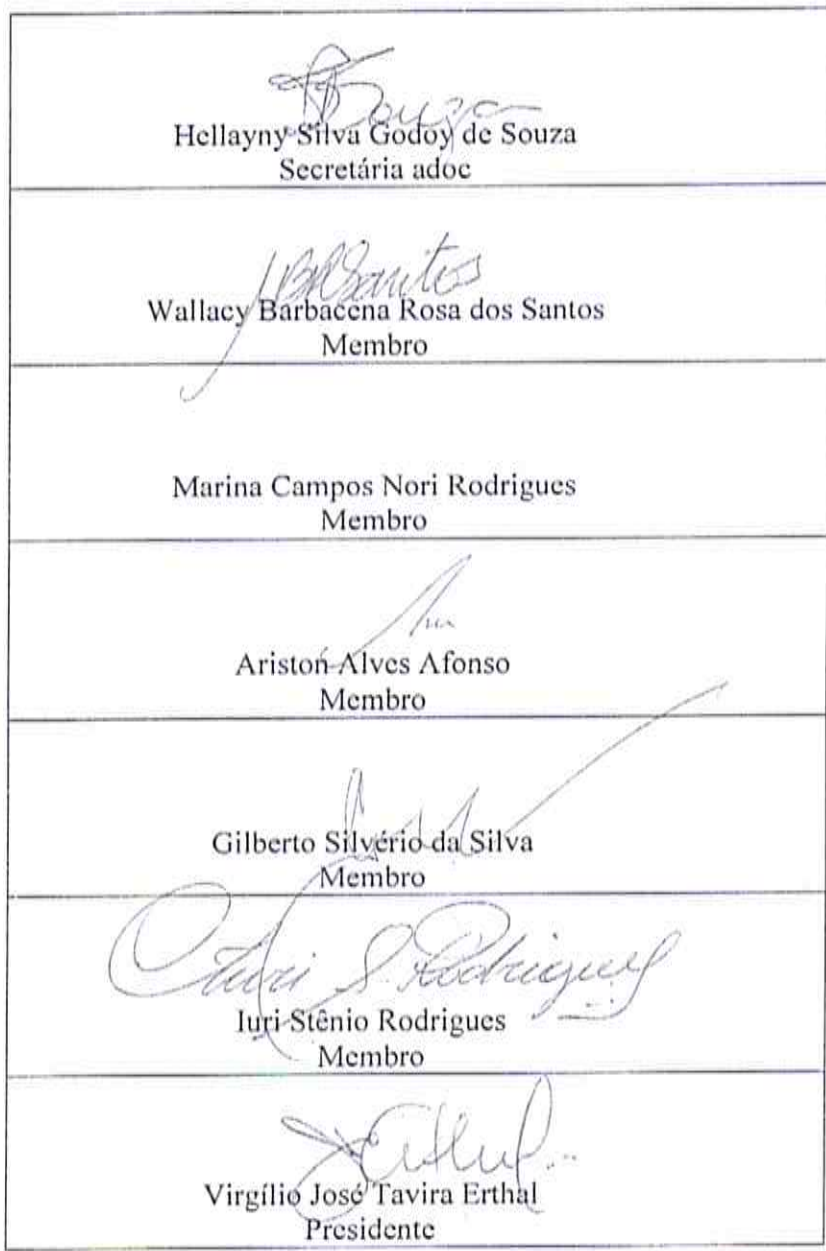 Souza
Hellayny Silva Godoy de Souza
Secretária adoc
Wallacy Barbacena Rosa dos Santos
Membro
Marina Campos Nori Rodrigues
Membro
Ariston Alves Afonso
Membro
Gilberto Silvério da Silva
Membro
Iuri S. Rodrigues
Iuri Stênio Rodrigues
Membro
Virgílio José Tavira Erthal
Presidente